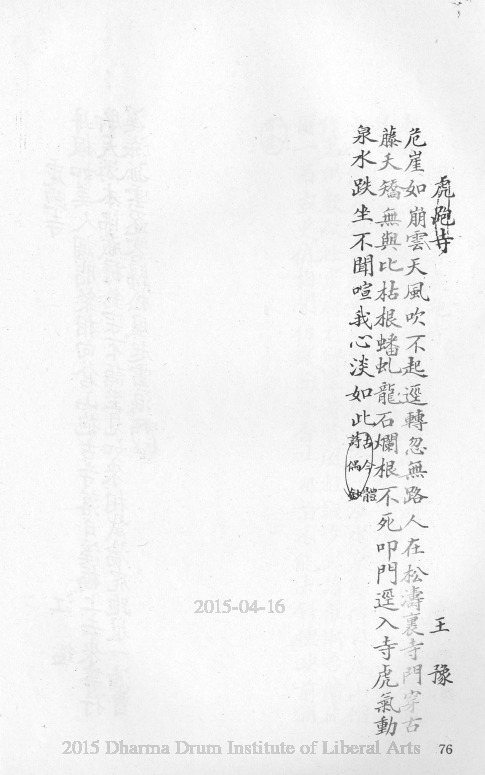 虎跑寺 王豫
危崖如崩雲天風吹不起逕轉忽無路人在松濤裏寺門穿古
藤夭矯無與比枯根蟠虬龍石爛根不死叩門逕入寺虎氣動
泉水趺坐不聞喧我心淡如此古今體詩偶鈔
2015-04-16
2015 Dharma Drum Institute of Liberal Arts 76